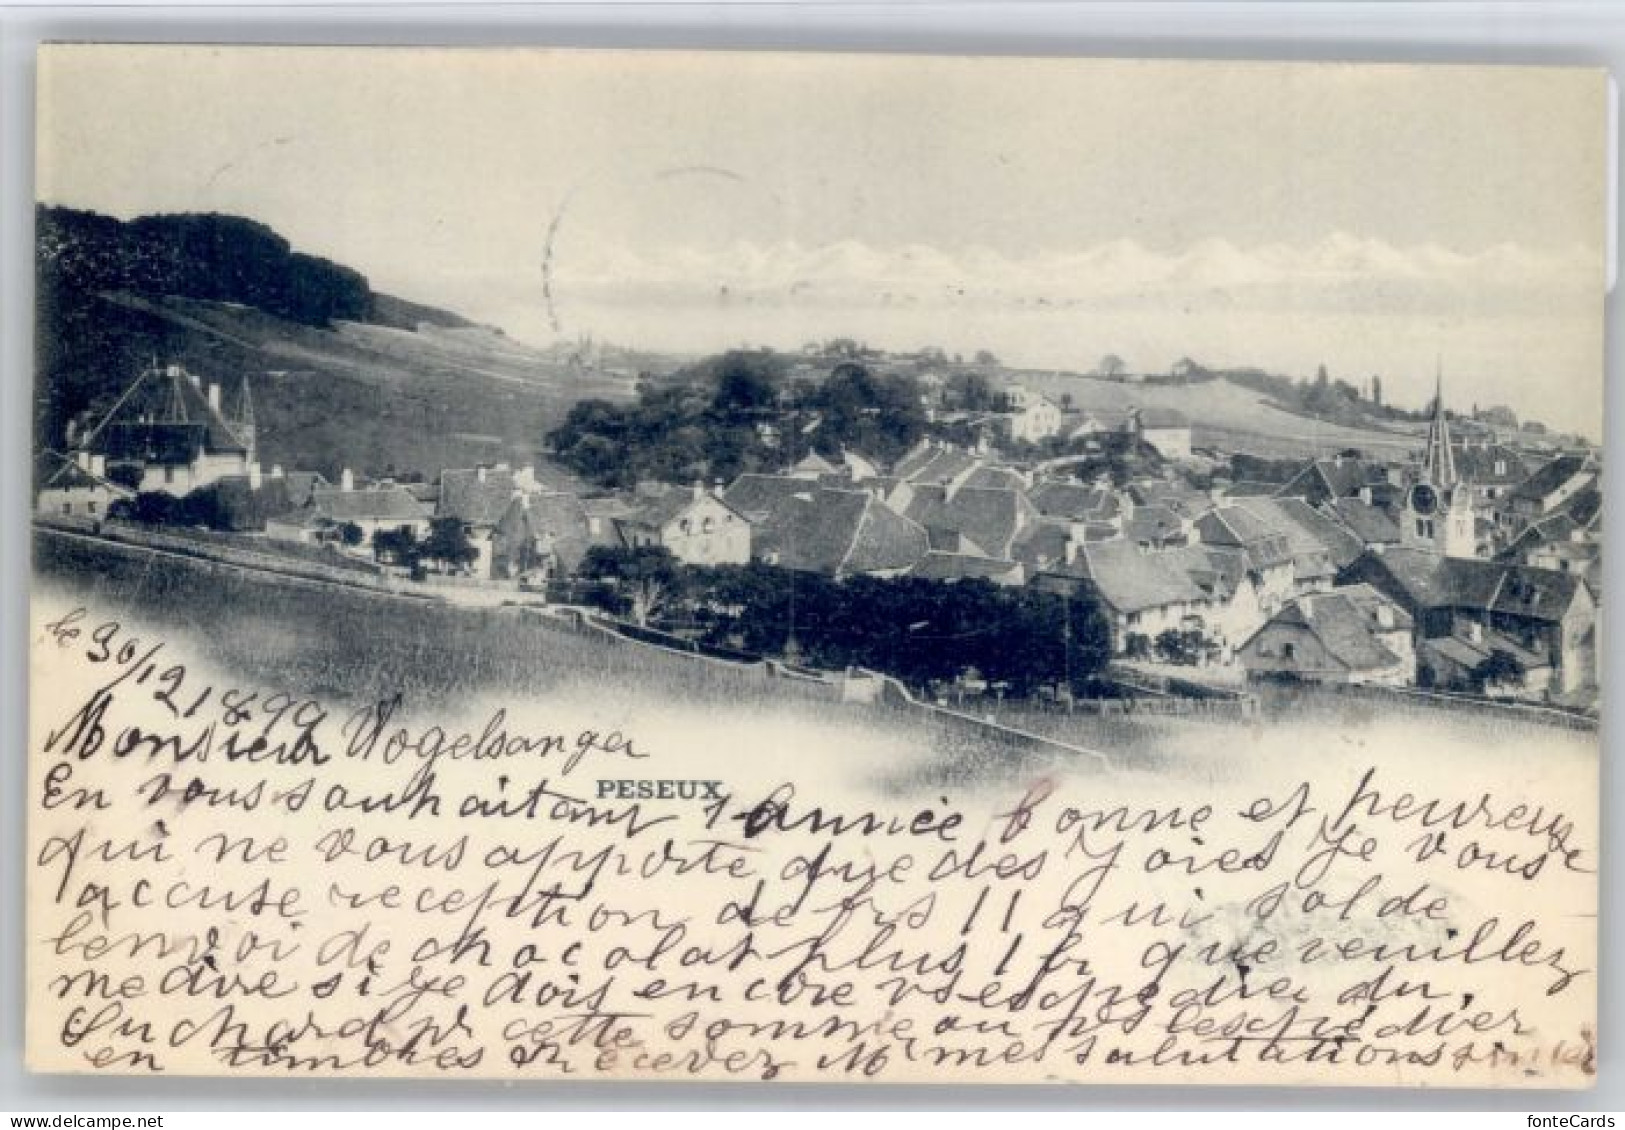 le 30/12 1899
Monsieur Vogelsanger
PESEUX
En vous souhaitant 1 année bonne et heureuse
qui ne vous apporte que des joies je vous
accuse reception de frs 11 qui solde
l'envoi de chocolat plus 1 fr que veuillez
me dire si je dois encore vs expedier du
Suchard pr cette somme ou vs les expédier
en timbres Recevez Mr mes salutations
delcampe.net
fonteCards